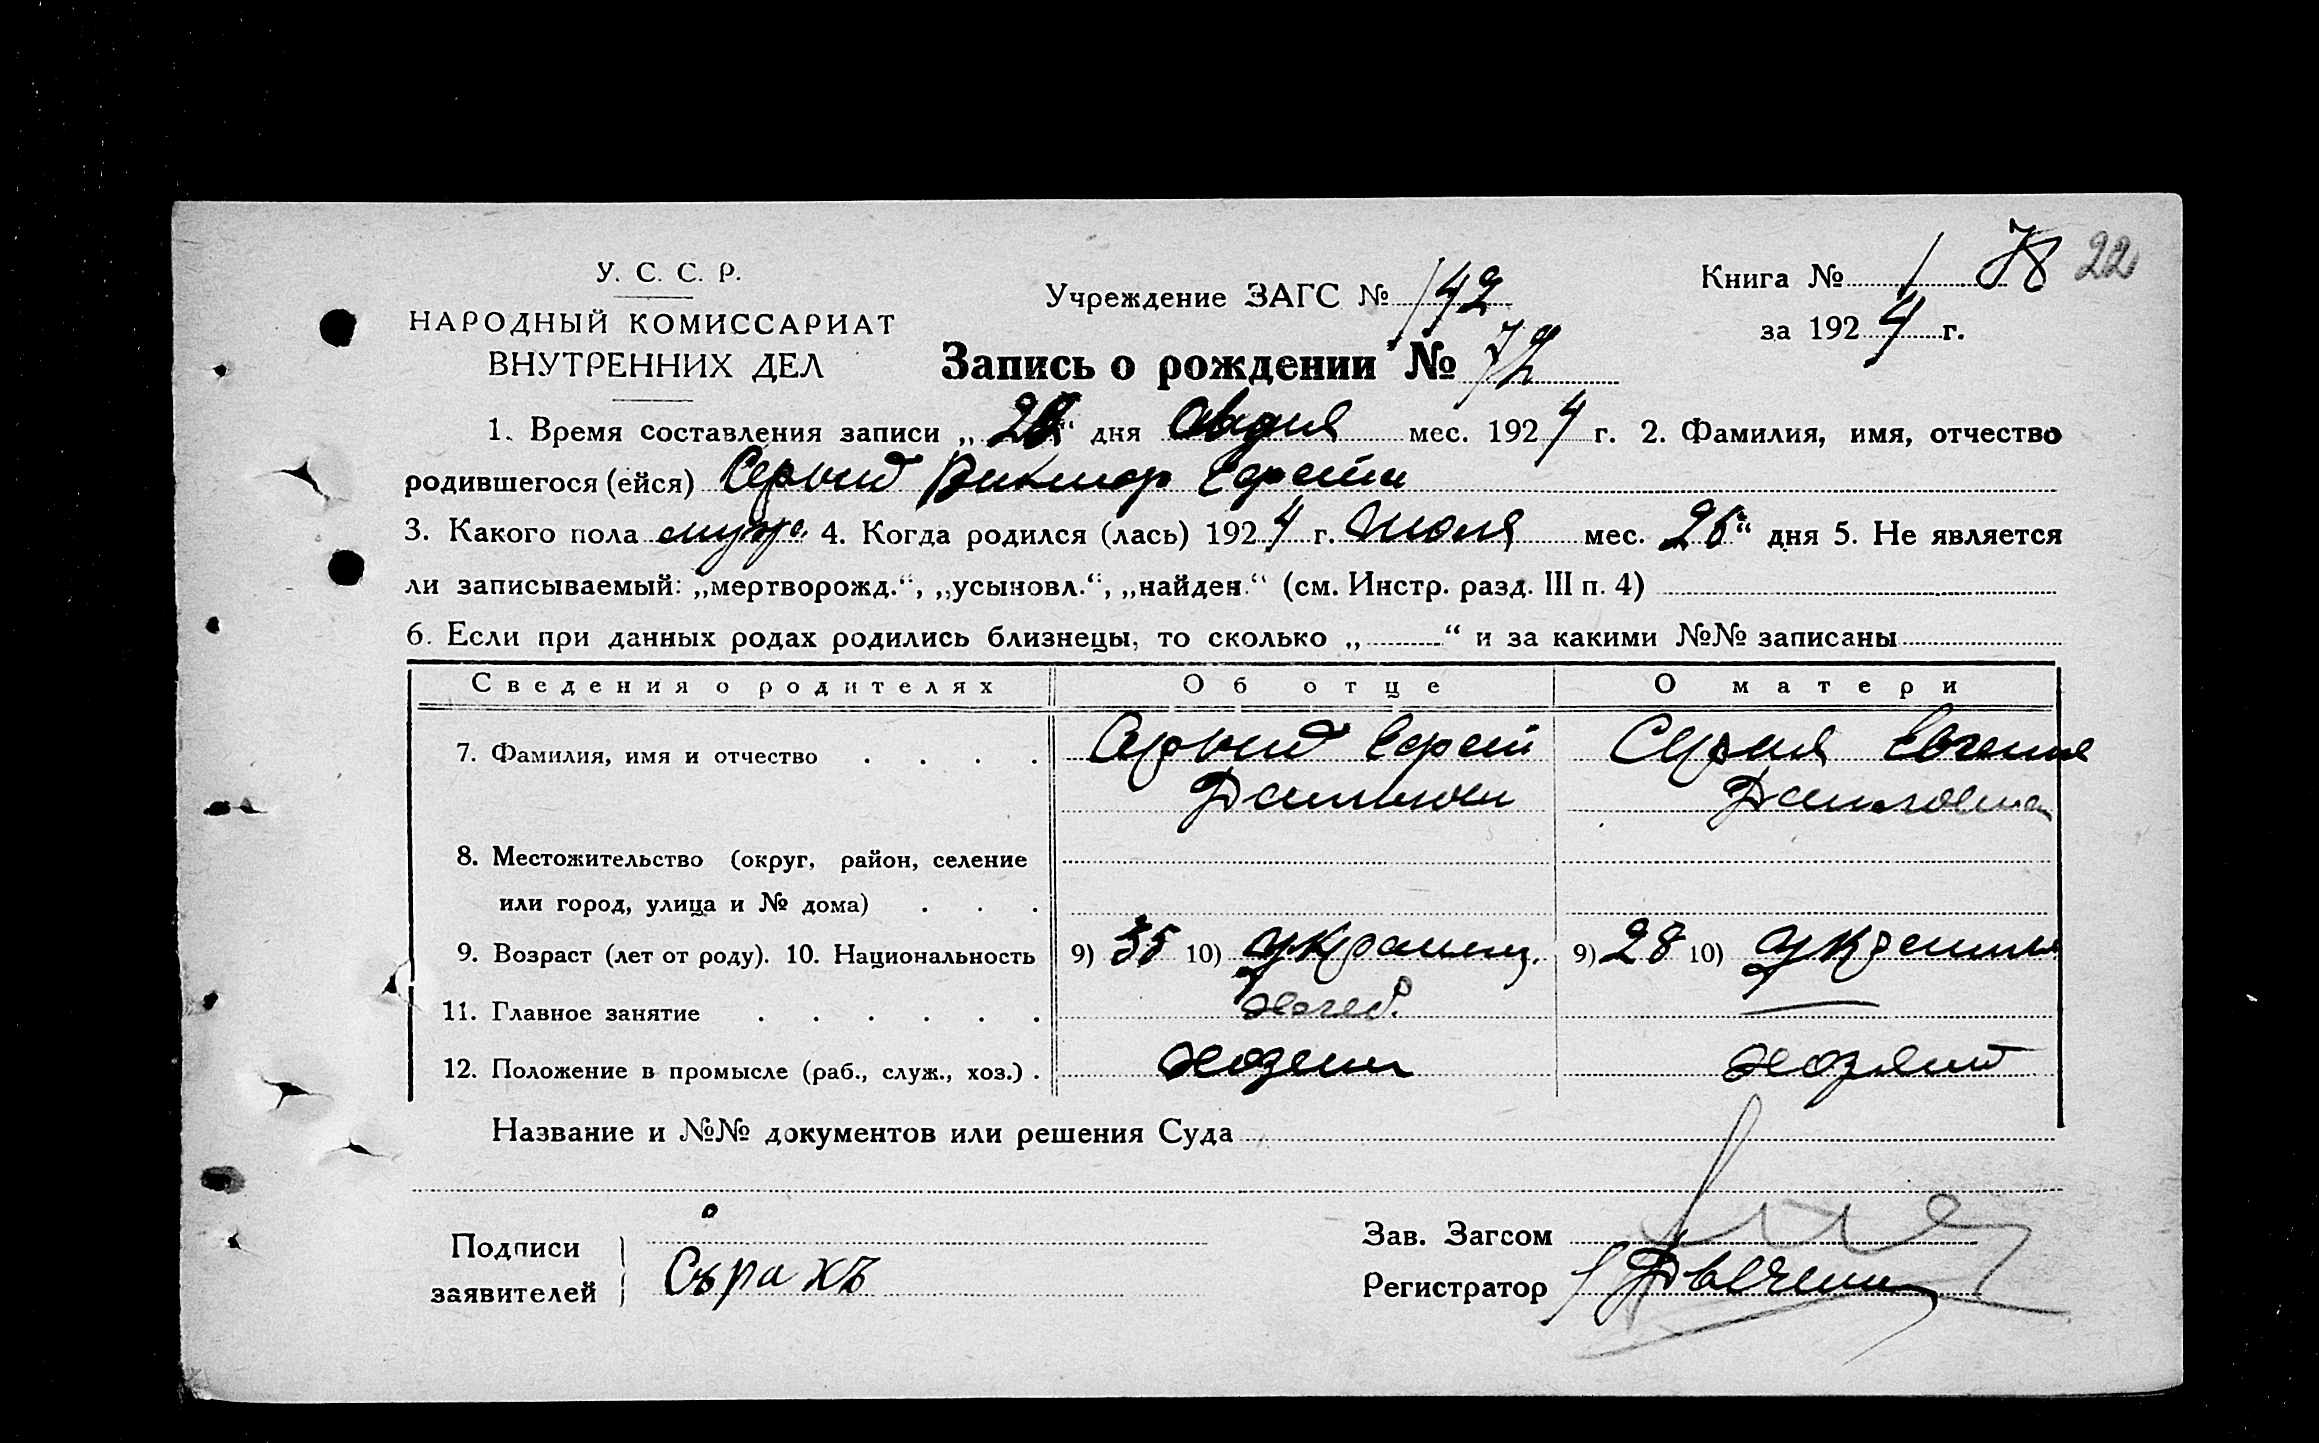 У. С. С. Р.
НАРОДНЫЙ КОМИССАРИАТ
ВНУТРЕННИХ ДЕЛ
Учреждение ЗАГС № 142
Книга № 1 78 22
за 1924 г.
Запись о рождении № 72
1. Время составления записи „28“ дня мес. 1924 г. 2. Фамилия, имя, отчество
родившегося (ейся) Серый Виктор
3. Какого пола муж. 4. Когда родился (лась) 1924 г. Июля мес. 26“ дня 5. Не является
ли записываемый: „мертворожд.“, „усыновл.“, „найден.“ (см. Инстр. разд. III п. 4)
6. Если при данных родах родились близнецы, то сколько „ “ и за какими №№ записаны
Сведения о родителях Об отце О матери
7. Фамилия, имя и отчество . . . . Серый Сергей Серая Евгения
Даниловна
8. Местожительство (округ, район, селение
или город, улица и № дома) . . .
9. Возраст (лет от роду). 10. Национальность 9) 35 10) украинец. 9) 28 10)
11. Главное занятие . . . . . . хлеб.
12. Положение в промысле (раб., служ., хоз.) . хозяин
Название и №№ документов или решения Суда
Подписи
заявителей
Зав. Загсом
Регистратор